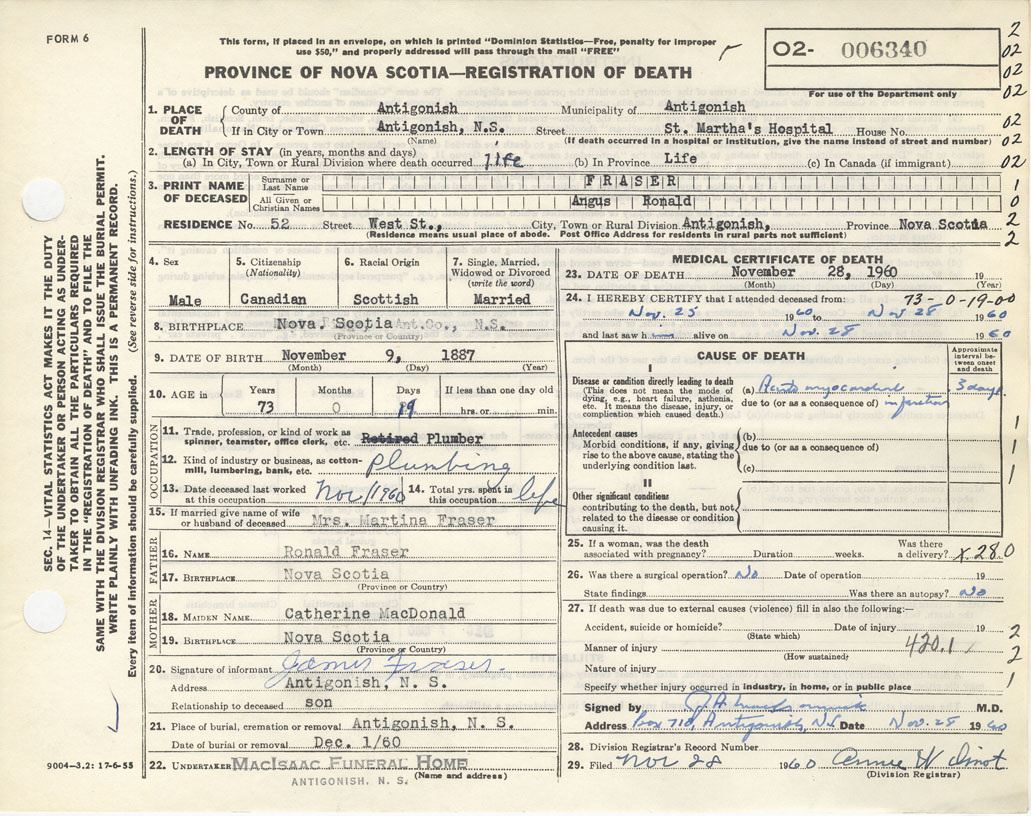 FORM 6
This form, if placed in an envelope, on which is printed "Dominion Statistics—Free, penalty for improper
use $50," and properly addressed will pass through the mail "FREE"
PROVINCE OF NOVA SCOTIA—REGISTRATION OF DEATH
02- 006340
For use of the Department only
2
02
02
02
02
02
02
1
0
2
2
1. PLACE OF DEATH
County of Antigonish Municipality of Antigonish
If in City or Town Antigonish, N.S. Street St. Martha's Hospital House No.
(Name) (If death occurred in a hospital or institution, give the name instead of street and number)
2. LENGTH OF STAY (in years, months and days)
(a) In City, Town or Rural Division where death occurred life (b) In Province Life (c) In Canada (if immigrant)
3. PRINT NAME OF DECEASED
Surname or Last Name FRASER
All Given or Christian Names Angus Ronald
RESIDENCE No. 52 Street West St., City, Town or Rural Division Antigonish, Province Nova Scotia
(Residence means usual place of abode. Post Office Address for residents in rural parts not sufficient)
SEC. 14—VITAL STATISTICS ACT MAKES IT THE DUTY
OF THE UNDERTAKER OR PERSON ACTING AS UNDER-
TAKER TO OBTAIN ALL THE PARTICULARS REQUIRED
IN THE "REGISTRATION OF DEATH" AND TO FILE THE
SAME WITH THE DIVISION REGISTRAR WHO SHALL ISSUE THE BURIAL PERMIT.
WRITE PLAINLY WITH UNFADING INK. THIS IS A PERMANENT RECORD.
Every item of information should be carefully supplied. (See reverse side for instructions.)
4. Sex
Male
5. Citizenship
(Nationality)
Canadian
6. Racial Origin
Scottish
7. Single, Married,
Widowed or Divorced
(write the word)
Married
8. BIRTHPLACE Nova Scotia Ant.Co., N.S.
(Province or Country)
9. DATE OF BIRTH November 9, 1887
(Month) (Day) (Year)
10. AGE in Years 73 Months 0 Days 19 If less than one day old
hrs. or min.
OCCUPATION
11. Trade, profession, or kind of work as
spinner, teamster, office clerk, etc. Retired Plumber
12. Kind of industry or business, as cotton-
mill, lumbering, bank, etc. Plumbing
13. Date deceased last worked
at this occupation Nov/1960
14. Total yrs. spent in
this occupation life
15. If married give name of wife
or husband of deceased Mrs. Martina Fraser
FATHER
16. NAME Ronald Fraser
17. BIRTHPLACE Nova Scotia
(Province or Country)
MOTHER
18. MAIDEN NAME Catherine MacDonald
19. BIRTHPLACE Nova Scotia
(Province or Country)
20. Signature of informant James Fraser
Address Antigonish, N. S.
Relationship to deceased son
21. Place of burial, cremation or removal Antigonish, N. S.
Date of burial or removal Dec. 1/60
22. UNDERTAKER MACISAAC FUNERAL HOME
ANTIGONISH, N. S. (Name and address)
9004—3.2: 17-6-55
MEDICAL CERTIFICATE OF DEATH
23. DATE OF DEATH November 28, 1960 19
(Month) (Day) (Year)
24. I HEREBY CERTIFY that I attended deceased from: 73-0-19-00
Nov. 25 1960 to Nov 28 1960
and last saw h alive on Nov. 28 1960
CAUSE OF DEATH
Approximate
interval be-
tween onset
and death
I
Disease or condition directly leading to death
(This does not mean the mode of
dying, e.g., heart failure, asthenia,
etc. It means the disease, injury, or
complication which caused death.)
(a) Acute myocardial 3 days.
due to (or as a consequence of) infarction
Antecedent causes
Morbid conditions, if any, giving
rise to the above cause, stating the
underlying condition last.
(b)
due to (or as a consequence of)
(c)
1
1
1
II
Other significant conditions
contributing to the death, but not
related to the disease or condition
causing it.
25. If a woman, was the death
associated with pregnancy? Duration weeks. Was there
a delivery? X280
26. Was there a surgical operation? No Date of operation 19
State findings Was there an autopsy? No
27. If death was due to external causes (violence) fill in also the following:—
Accident, suicide or homicide? Date of injury 19
(State which)
Manner of injury 420.1
(How sustained)
Nature of injury
Specify whether injury occurred in industry, in home, or in public place
2
2
1
Signed by M.D.
Address Box 718, Antigonish, N.S. Date Nov. 28 1960
28. Division Registrar's Record Number
29. Filed Nov 28 1960 Annie W
(Division Registrar)